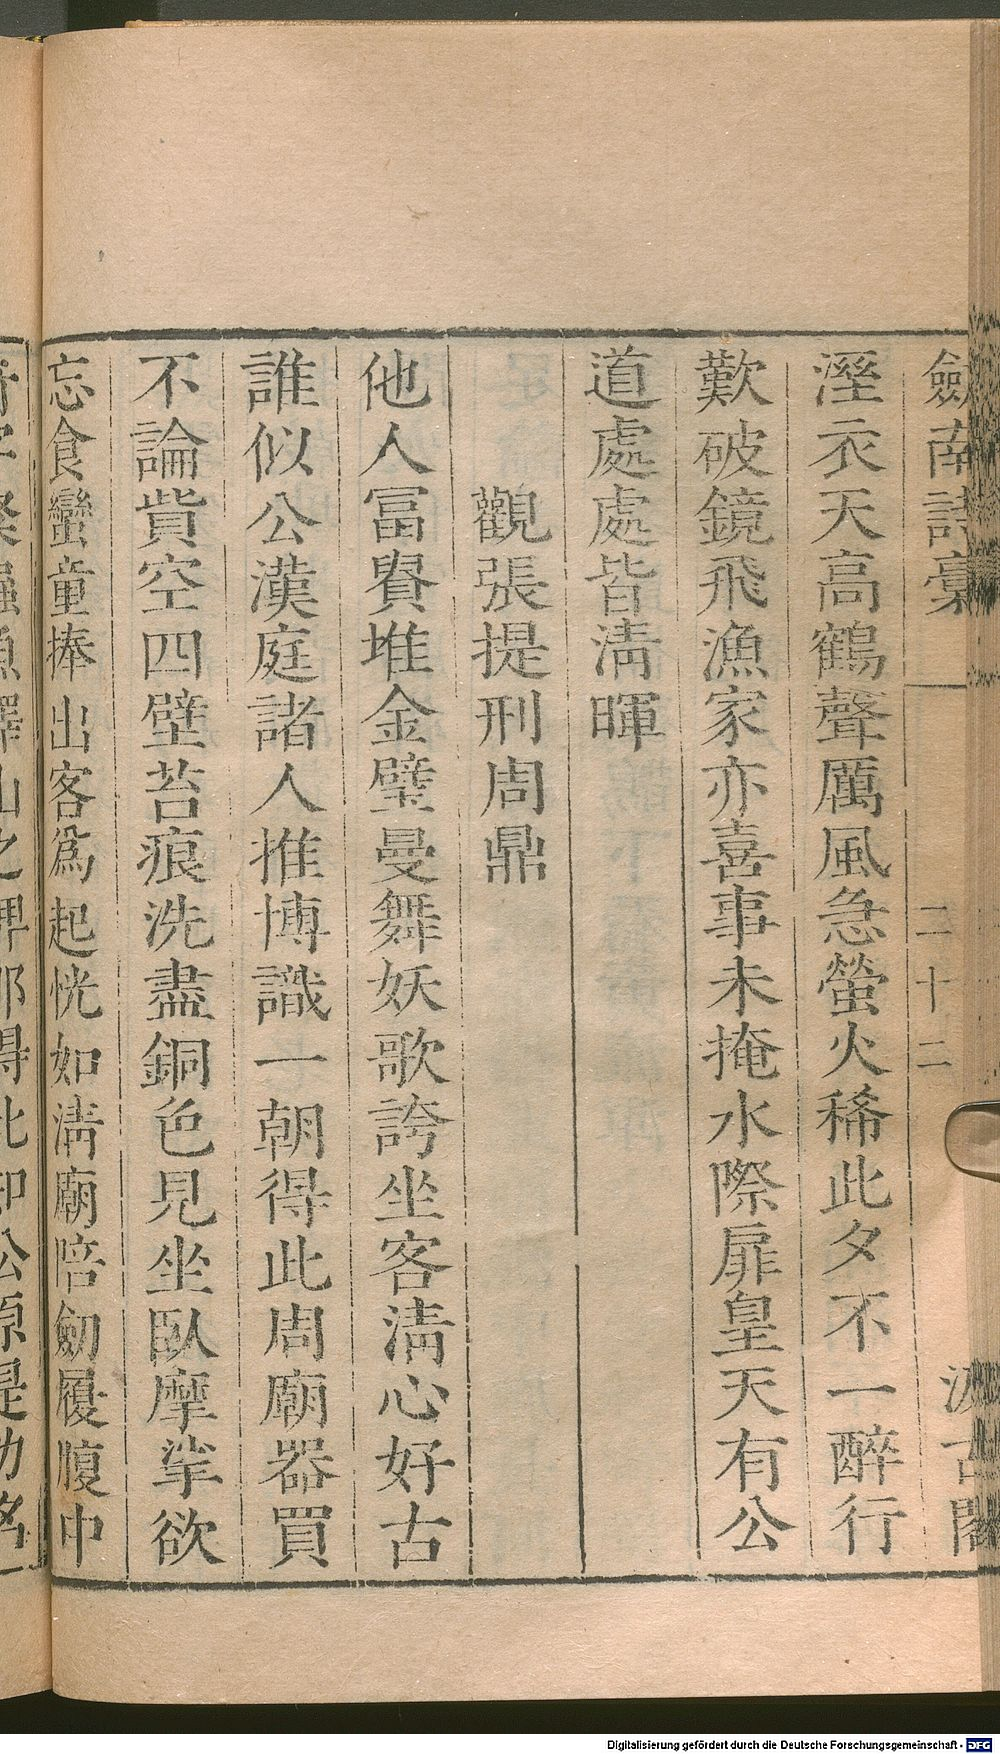 劍南詩稾 二十二 汲古閣
溼衣天高鶴聲厲風急螢火稀此夕不一醉行
歎破鏡飛漁家亦喜事未掩水際扉皇天有公
道處處皆淸暉
觀張提刑周鼎
他人富貴堆金璧曼舞妖歌誇坐客淸心好古
誰似公漢庭諸人推博識一朝得此周廟器買
不論貲空四壁苔痕洗盡銅色見坐臥摩挲欲
忘食蠻童捧出客爲起恍如淸廟陪劒履腹中
之碑那得比卽公原是功名
Digitalisierung gefördert durch die Deutsche Forschungsgemeinschaft - DFG